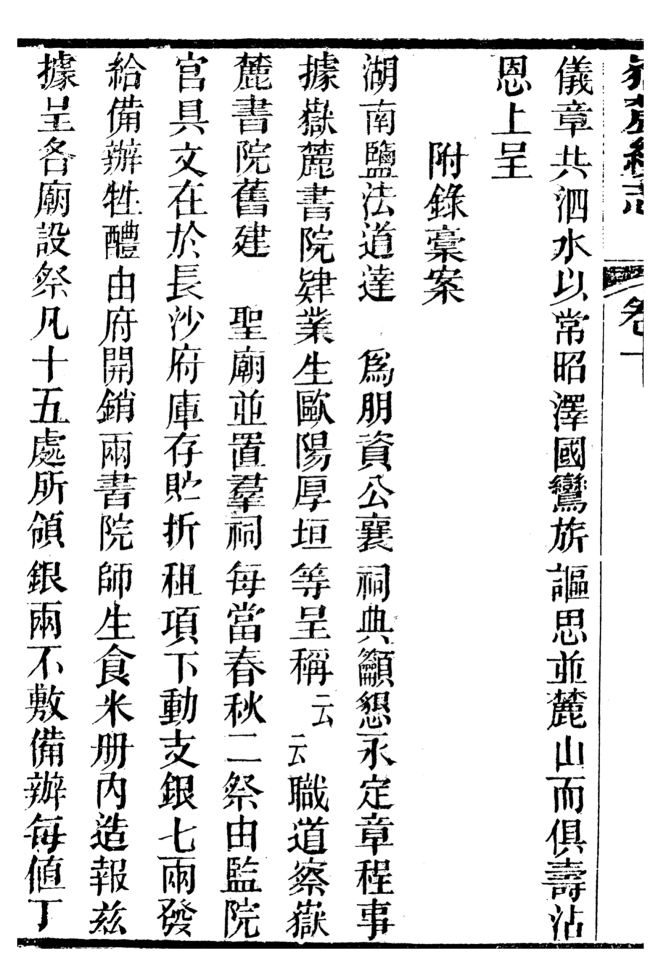 儀章共泗水以常昭澤國鸞旂謳思並麓山而俱壽沾
恩上呈
附錄稾案
湖南鹽法道達　爲朋資公襄祠典籲懇永定章程事
據嶽麓書院肄業生歐陽厚垣等呈稱云云職道察嶽
麓書院舊建　聖廟並置羣祠每當春秋二祭由監院
官具文在於長沙府庫存貯折租項下動支銀七兩發
給備辦牲醴由府開銷兩書院師生食米册內造報茲
據呈各廟設祭凡十五處所領銀兩不敷備辦每值丁